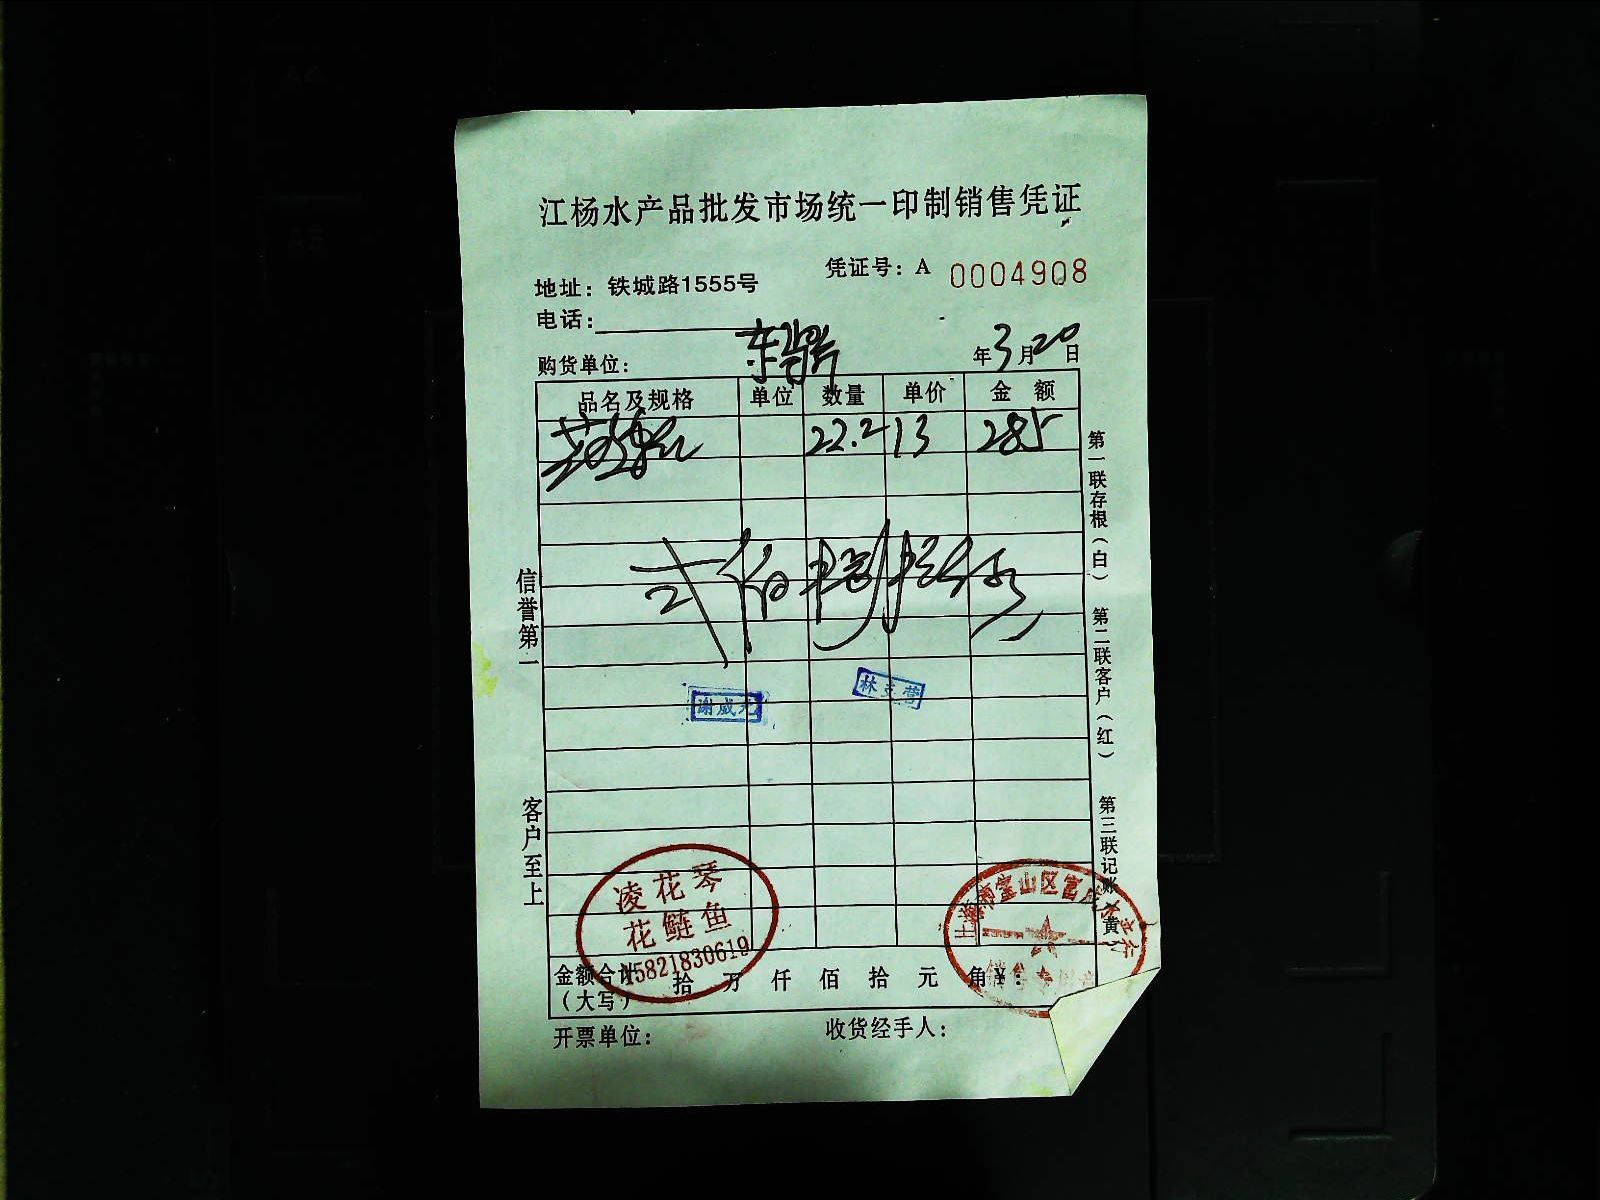 江杨水产品批发市场统一印制销售凭证
凭证号：A 0004908
地址：铁城路1555号
电话：
购货单位： 年3月20日
品名及规格 单位 数量 单价 金额
22.2 13 285
式佰捌拾伍
信誉第一
客户至上
第一联存根（白）
第二联客户（红）
第三联记账（黄）
凌花琴
花鲢鱼
15821830619
金额合计 拾 万 仟 佰 拾 元 角 ¥：
（大写）
开票单位： 收货经手人：